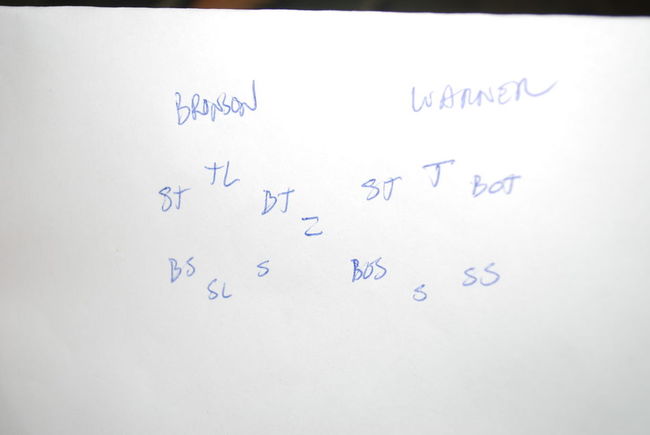 BRONSON WARNER
ST TL BT Z ST T BOT
BS SL S BOS S SS